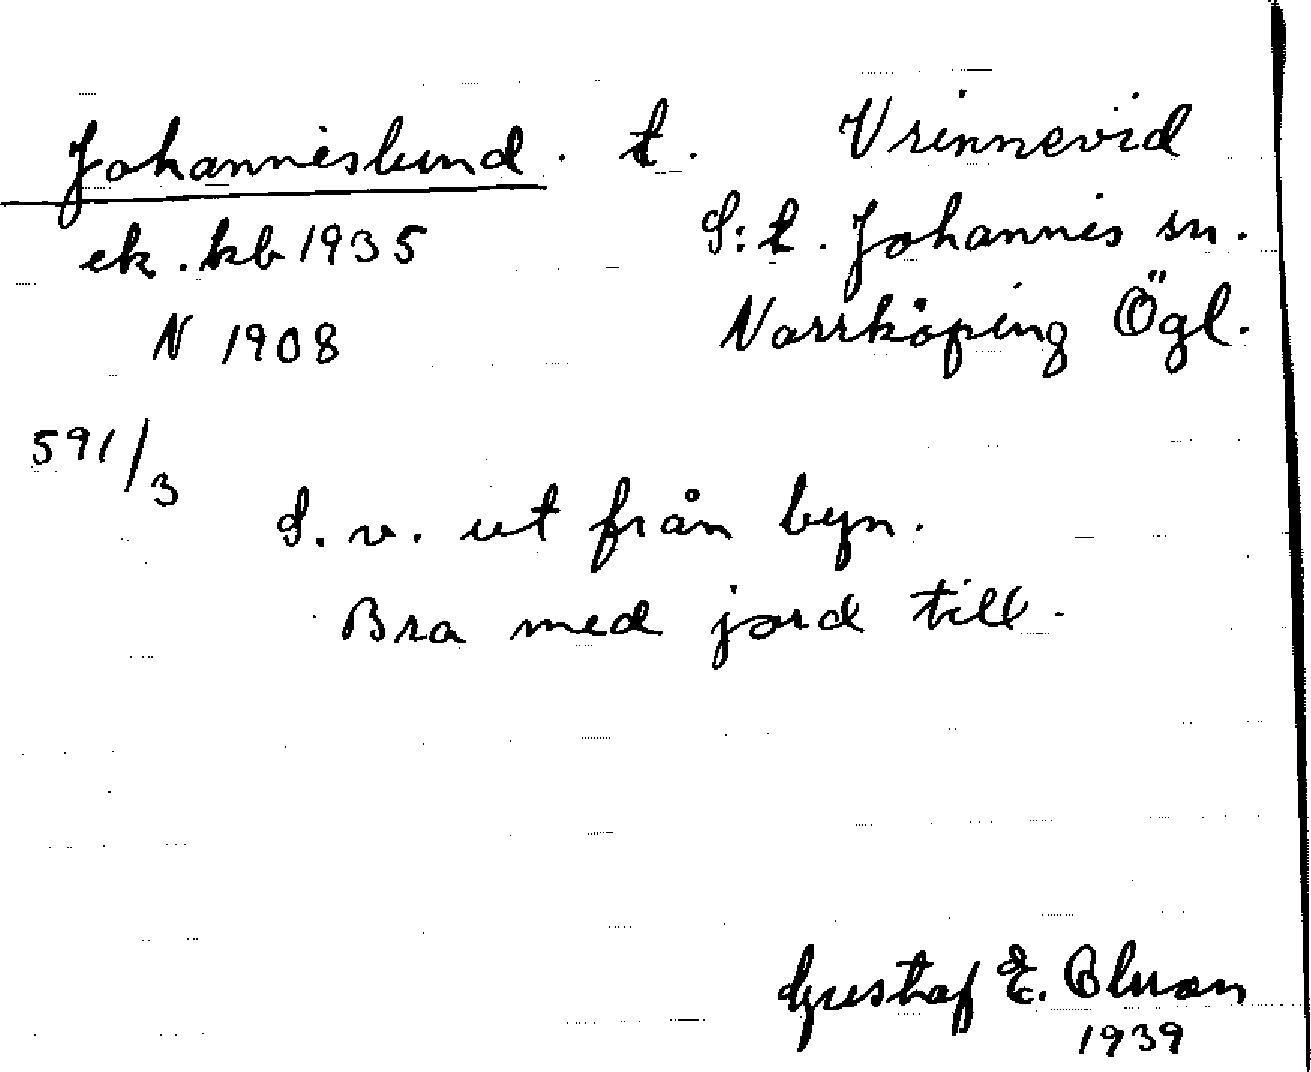 Johanneslund. t. Vrinnevid
ek. kb 1935 S:t. Johannis sn.
N 1908 Norrköping Ögl.
591/3
S. v. ut från byn.
Bra med jord till.
Gustaf E.
1939